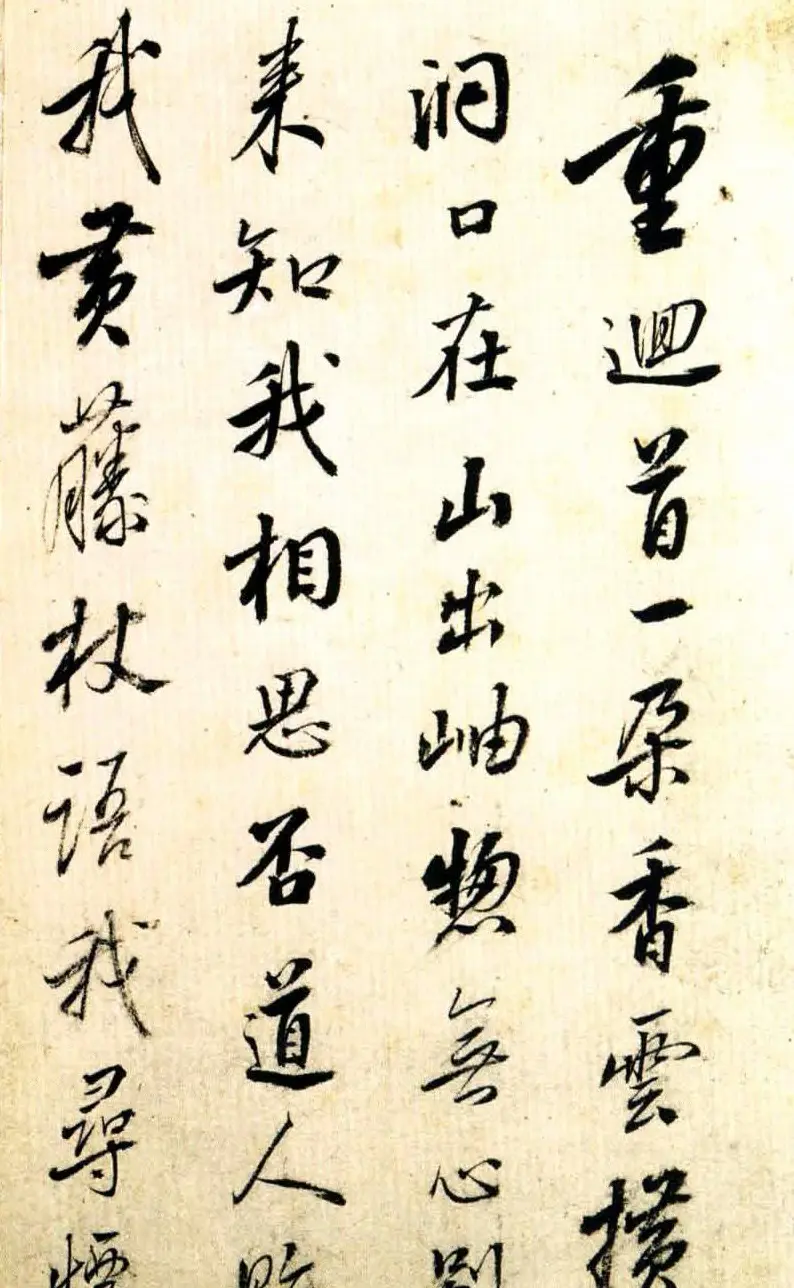 重迴首一朶香雲横
洞口在山出岫惣無心別
来知我相思否道人貽
我黄藤杖語我尋煙